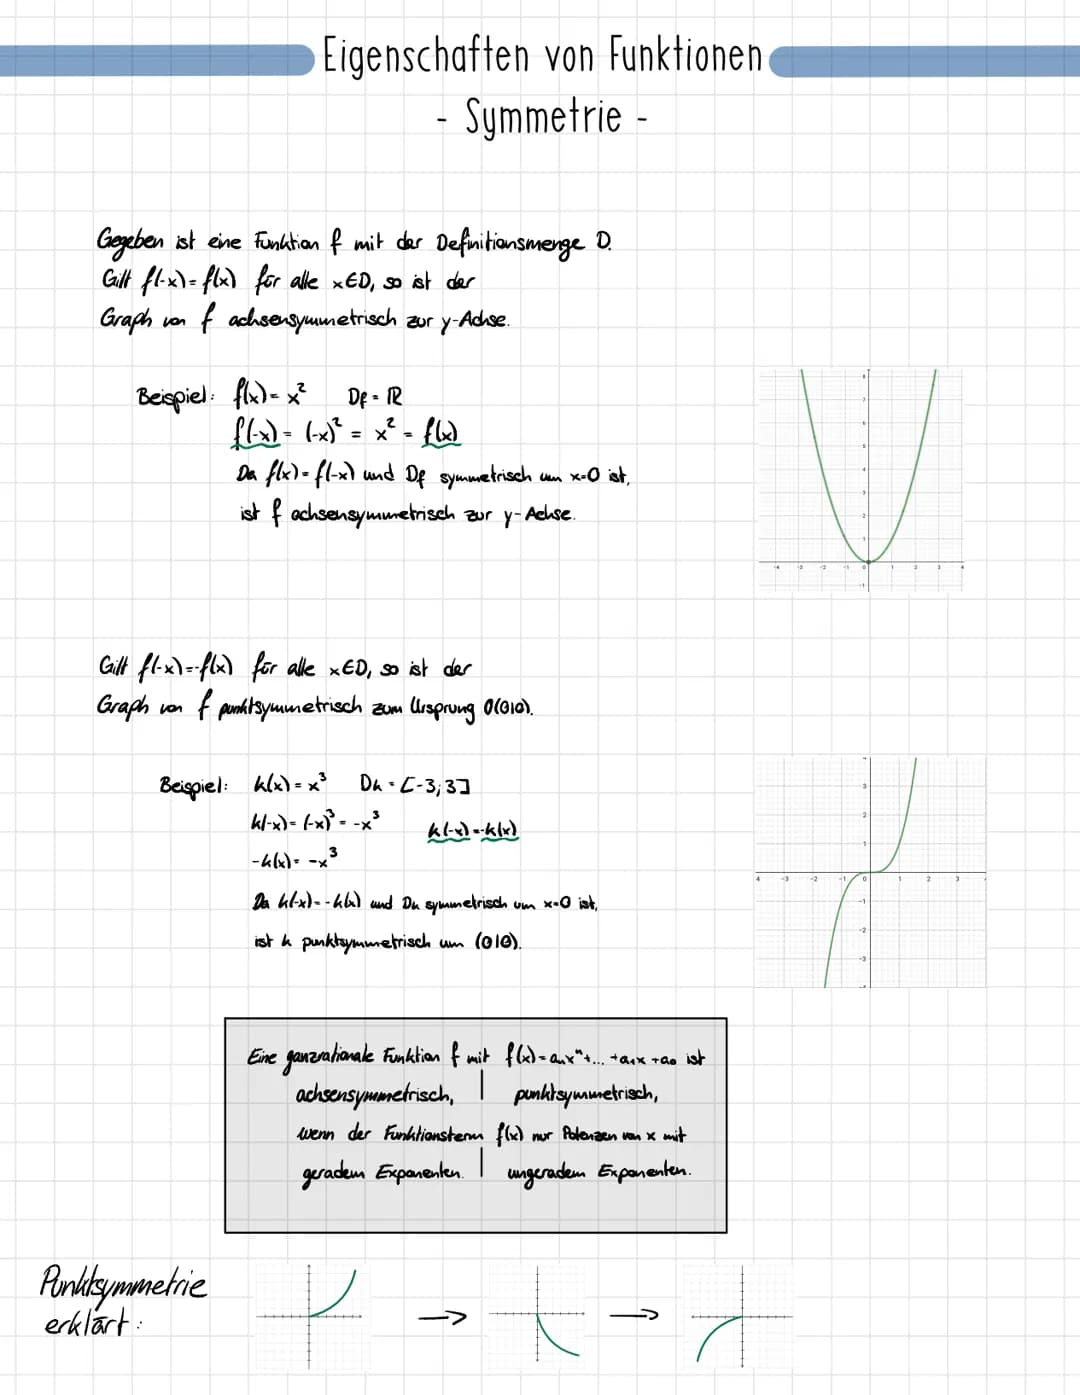 Eigenschaften von Funktionen
- Symmetrie -
Gegeben ist eine Funktion f mit der Definitionsmenge D.
Gilt f(-x)=f(x) für alle x∈D, so ist der
Graph von f achsensymmetrisch zur y-Achse.
Beispiel: f(x)=x² Df = ℝ
f(-x) = (-x)² = x² = f(x)
Da f(x)=f(-x) und Df symmetrisch um x=0 ist,
ist f achsensymmetrisch zur y-Achse.
Gilt f(-x)=-f(x) für alle x∈D, so ist der
Graph von f punktsymmetrisch zum Ursprung O(0|0).
Beispiel: k(x)=x³ Dk = [-3;3]
k(-x)=(-x)³ = -x³ k(-x)=-k(x)
-k(x)= -x³
Da k(-x)=-k(x) und Dk symmetrisch um x=0 ist,
ist k punktsymmetrisch um (0|0).
Eine ganzrationale Funktion f mit f(x)=aₙxⁿ+...+a₁x+a₀ ist
achsensymmetrisch, | punktsymmetrisch,
wenn der Funktionsterm f(x) nur Potenzen von x mit
geradem Exponenten. | ungeradem Exponenten.
Punktsymmetrie
erklärt: